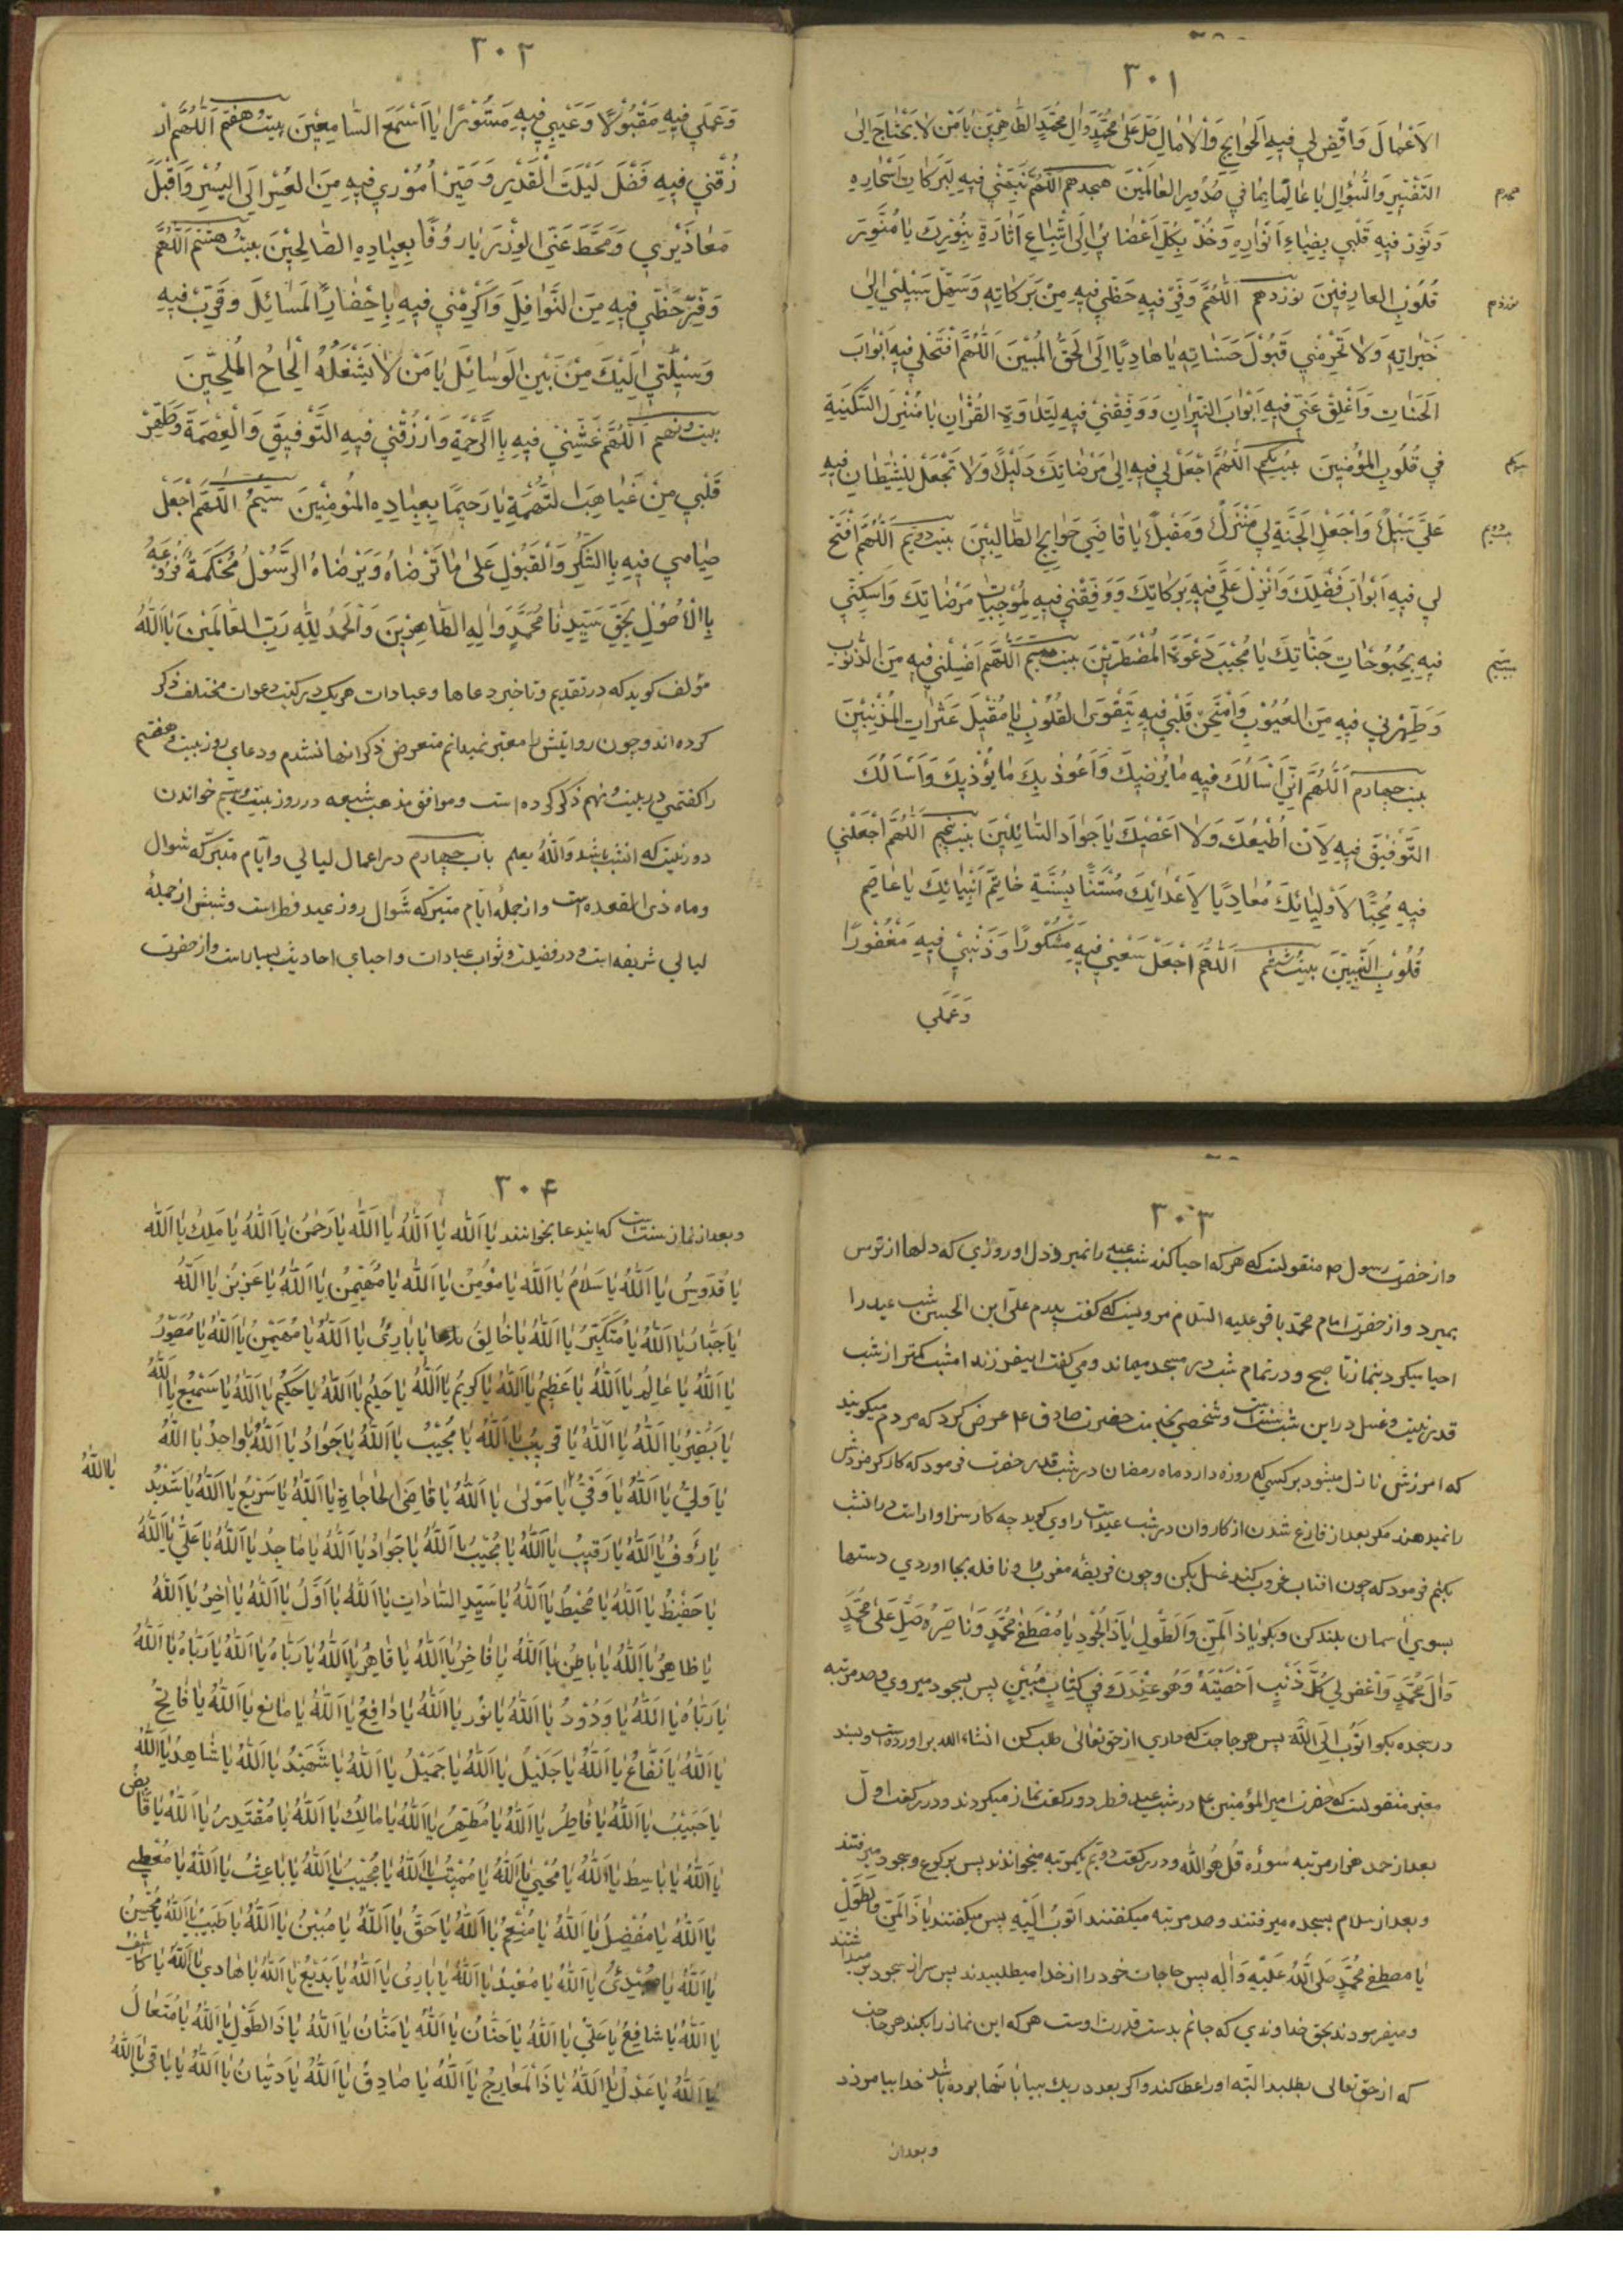 ٣٠١
الاَعْمٰالَ وَاقْضِ لي فيهِ الحَوٰايِجِ وَالْاٰمٰالِ صَلِّ عَلیٰ مُحَمَّدٍ وَاٰلِ مُحَمَّدٍ الطّٰاهِرِينَ يٰا مَنْ لٰا يَحْتٰاجُ اِلیٰ
التَّفْسِيرِ وَالسُّؤٰالِ يٰا عٰالِمًا بِمٰا في صُدُورِ العٰالَمينَ هيجدهم اَللّٰهُمَّ نَبِّهْني فيهِ لِبَرَكٰاتِ اَسْحٰارِهِ
هيجدهم
وَنَوِّرْ فيهِ قَلْبي بِضِيٰاءِ اَنْوٰارِهِ وَخُذْ بِكُلِّ اَعْضٰائي اِلَی اتِّبٰاعِ اٰثٰارِهِ بِنُورِكَ يٰا مُنَوِّرَ
قُلُوبِ العارِفينَ نوزدهم اَللّٰهُمَّ وَفِّرْ فيهِ حَظّي فيهِ مِنْ بَرَكٰاتِهِ وَسَهِّلْ سَبيلي اِلیٰ
نوزدهم
خَيْرٰاتِهِ وَلٰا تَحْرِمْني قَبُولَ حَسَنٰاتِهِ يٰا هٰادِيًا اِلَی الحَقِّ المُبينِ اَللّٰهُمَّ افْتَحْ لي فيهِ اَبْوٰابَ
الجَنٰاتِ وَاَغْلِقْ عَنّي فيهِ اَبْوٰابَ النّيرٰانِ وَوَفِّقْني فيهِ لِتِلٰاوَةِ القُرْاٰنِ يٰا مُنْزِلَ السَّكينَةِ
في قُلُوبِ المُؤْمِنينَ بيست‌يكم اَللّٰهُمَّ اجْعَلْ لي فيهِ اِلیٰ مَرْضٰاتِكَ دَليلًا وَلٰا تَجْعَلْ لِلشَّيْطٰانِ فيهِ
عَلَيَّ سَبيلًا وَاجْعَلِ الجَنَّةَ لي مَنْزِلًا وَمَقيلًا يٰا قٰاضِيَ حَوٰايِجِ الطّٰالِبينَ بيست‌دويم اَللّٰهُمَّ افْتَحْ
لي فيهِ اَبْوٰابَ فَضْلِكَ وَاَنْزِلْ عَلَيَّ فيهِ بَرَكٰاتِكَ وَوَفِّقْني فيهِ لِمُوجِبٰاتِ مَرْضٰاتِكَ وَاَسْكِنّي
فيهِ بِحُبُوحٰاتِ جَنّٰاتِكَ يٰا مُجيبَ دَعْوَةِ المُضْطَرّينَ بيست سيم اَللّٰهُمَّ اغْسِلْني فيهِ مِنَ الذُّنُوبِ
وَطَهِّرْني فيهِ مِنَ العُيُوبِ وَامْتَحِنْ قَلْبي فيهِ بِتَقْوَی القُلُوبِ يٰا مُقيلَ عَثَرٰاتِ المُذْنِبينَ
بيست چهارم اَللّٰهُمَّ اِنّي اَسْاَلُكَ فيهِ مٰا يُرْضيكَ وَاَعُوذُ بِكَ مٰا يُؤْذيكَ وَاَسْاَلُكَ
التَّوْفيقَ فيهِ لِاَنْ اُطيعَكَ وَلٰا اَعْصيكَ يٰا جَوٰادَ السّٰائِلينَ بيست پنجم اَللّٰهُمَّ اجْعَلْني
فيهِ مُحِبًّا لِاَوْلِيٰائِكَ مُعٰادِيًا لِاَعْدٰائِكَ مُسْتَنًّا بِسُنَّةِ خٰاتِمِ اَنْبِيٰائِكَ يٰا عٰاصِمَ
قُلُوبِ النَّبِيّينَ بيست ششم اَللّٰهُمَّ اجْعَلْ سَعْيي فيهِ مَشْكُورًا وَذَنْبي فيهِ مَغْفُورًا
وَعَمَلي
٣٠٢
وَعَمَلي فيهِ مَقْبُولًا وَعَيْبي فيهِ مَسْتُورًا يٰا اَسْمَعَ السّٰامِعينَ بيست هفتم اَللّٰهُمَّ ار
زُقْني فيهِ فَضْلَ لَيْلَتَ الْقَدْرِ وَصَيِّرْ اُمُوري فيهِ مِنَ العُسْرِ اِلَی اليُسْرِ وَاقْبَلْ
مَعٰاذيري وَحُطَّ عَنِّيَ الوِزْرَ يٰا رَؤُفًا بِعِبٰادِهِ الصّٰالِحينَ بيست هشتم اَللّٰهُمَّ
وَفِّرْ حَظّي فيهِ مِنَ النَّوٰافِلِ وَاَكْرِمْني فيهِ بِاِحْضٰارِ المَسٰائِلِ وَقَرِّبْ فيهِ
وَسيلَتي اِلَيْكَ مِنْ بَيْنِ الوَسٰائِلِ يٰا مَنْ لٰا يَشْغَلُهُ اِلْحٰاحُ المُلِحّينَ
بيست ونهم اَللّٰهُمَّ غَشِّني فيهِ بِالرَّحْمَةِ وَارْزُقْني فيهِ التَّوْفيقَ وَالْعِصْمَةَ وَطَهِّرْ
قَلْبي مِنْ غَيٰاهِبِ التُّهْمَةِ يٰا رَحيمًا بِعِبٰادِهِ المُؤْمِنينَ سيم اَللّٰهُمَّ اجْعَلْ
صِيٰامي فيهِ بِالشُّكْرِ وَالْقَبُولِ عَلیٰ مٰا تَرْضٰاهُ وَيَرْضٰاهُ الرَّسُولُ مُحْكَمَةً فُرُوعُهُ
بِالْاُصُولِ بِحَقِّ سَيِّدِنٰا مُحَمَّدٍ وَاٰلِهِ الطّٰاهِرينَ وَالْحَمْدُ لِلّٰهِ رَبِّ العٰالَمينَ يٰا اَللّٰهُ
مؤلف كويد كه در تقديم وتاخير دعاها وعبادات هريك در كتب دعوات مختلف ذكر
كرده اند وچون روايتش را معتبر نميدانم متعرض ذكر انها نشدم ودعاي روز بيست وهفتم
را كفعمي در بيست ونهم ذكر كرده است وموافق مذهب شيعه در روز بيست وسيم خواندن
باب چهارم در اعمال ليالي وايّام متبرّكه شوال
وماه ذي القعده است واز جملهٔ ايّام متبرّكه شوال روز عيد فطر است وشبش از جملهٔ
ليالي شريفه است ودر فضيلت وثواب عبادات واحياي احاديث بسيار است واز حضرت
٣٠٣
واز حضرت رسول ص منقولست كه هر كه احيا كند شب عيد را نميرد دل او روزي كه دلها از ترس
بميرد واز حضرت امام محمّد باقر عليه السّلام مرويست كه كفت پدرم علي ابن الحسين شب عيد را
احيا ميكرد بنماز تا صبح ودر تمام شب در مسجد ميماند ومي كفت ايفرزند امشب كمتر از شب
قدر نيست وغسل در اين شب سنّت است وشخصي بخدمت حضرت صادق ع عرض كرد كه مردم ميكويند
كه امرزش نازل ميشود بر كسي كه روزه دارد ماه رمضان در شب قدر حضرت فرمود كه كاركر مزدش
را نميدهند مكر بعد از فارغ شدن از كار وان در شب عيد است راوي كويد چه كار سزاوار است در انشب
بكنم فرمود كه چون افتاب غروب كند غسل بكن وچون فريضه مغرب را ونافله بجا اوردي دستها
بسوي اسمان بلند كن وبكو يٰا ذَا المَنِّ وَالطَّوْلِ يٰا ذَا الْجُودِ يٰا مُصْطَفِيَ مُحَمَّدٍ وَنٰاصِرَهُ صَلِّ عَلیٰ مُحَمَّدٍ
وَاٰلِ مُحَمَّدٍ وَاغْفِرْ لي كُلَّ ذَنْبٍ اَحْصَيْتَهُ وَهُوَ عِنْدَكَ في كِتٰابٍ مُبينٍ پس بسجود ميروي وصد مرتبه
در سجده بكو اَتُوبُ اِلَی اللّٰهِ پس هر حاجت كه داري از حق تعالیٰ طلب كن انشاء الله براورده است وبسند
معتبر منقولست كه حضرت امير المؤمنين ع در شب عيد فطر دو ركعت نماز ميكردند ودر ركعت اول
بعد از حمد هزار مرتبه سُورهٔ قُلْ هُوَ اللّٰه ودر ركعت دويم يكمرتبه ميخواندند پس بركوع وسجود ميرفتند
وبعد از سلام بسجده ميرفتند وصد مرتبه ميكفتند اَتُوبُ اِلَيْهِ پس ميكفتند يٰا ذَا المَنِّ وَالطَّوْلِ
يٰا مصطفي مُحَمَّدٍ صَلَّی اللّٰهُ عَلَيْهِ وَاٰلِهِ پس حاجات خود را از خدا ميطلبيدند پس سر از سجود برميداشتند
وميفرمودند بحق خداوندي كه جانم بدست قدرت اوست هر كه اين نماز را بكند هر حاجت
كه از حق تعالی بطلبد البتّه او را عطا كند واكر بعدد ريك بيابانها بوده باشد خدا بيامرزد
وبعداز
٣٠۴
وبعد از نماز سنت است كه ايندعا بخوانند يٰا اَللّٰه يٰا اَللّٰهُ يٰا اَللّٰه يٰا رَحْمٰنُ يٰا اَللّٰهُ يٰا مَلِكُ يٰا اَللّٰه
يٰا قُدّوسُ يٰا اَللّٰهُ يٰا سَلٰامُ يٰا اَللّٰه يٰا مُؤْمِنُ يٰا اَللّٰه يٰا مُهَيْمِنُ يٰا اَللّٰهُ يٰا عَزيزُ يٰا اَللّٰهُ
يٰا جَبّٰارُ يٰا اَللّٰهُ يٰا مُتَكَبِّرُ يٰا اَللّٰهُ يٰا خٰالِقُ يٰا بٰارِئُ يٰا اَللّٰهُ يٰا مُهَيْمِنُ يٰا اَللّٰهُ يٰا مُصَوِّرُ
يٰا اَللّٰهُ يٰا عٰالِمُ يٰا اَللّٰهُ يٰا عَظيمُ يٰا اَللّٰهُ يٰا كَريمُ يٰا اَللّٰهُ يٰا حَليمُ يٰا اَللّٰهُ يٰا حَكيمُ يٰا اَللّٰهُ يٰا سَميعُ يٰا اَللّٰهُ
يٰا بَصيرُ يٰا اَللّٰهُ يٰا اَللّٰهُ يٰا قَريبُ يٰا اَللّٰهُ يٰا مُجيبُ يٰا اَللّٰهُ يٰا جَوٰادُ يٰا اَللّٰهُ يٰا وٰاجِدُ يٰا اَللّٰهُ
يٰا وَلِيُّ يٰا اَللّٰهُ يٰا وَفِيُّ يٰا مَوْلیٰ يٰا اَللّٰهُ يٰا قٰاضِيَ الحٰاجٰاةِ يٰا اَللّٰهُ يٰا سَريعُ يٰا اَللّٰهُ يٰا شَديدُ
يٰا اللّٰهُ
يٰا رَؤُفُ يٰا اَللّٰهُ يٰا رَقيبُ يٰا اَللّٰهُ يٰا مُجيبُ يٰا اَللّٰهُ يٰا جَوٰادُ يٰا اَللّٰهُ يٰا مٰاجِدُ يٰا اَللّٰهُ يٰا عَلِيُّ يٰا اَللّٰهُ
يٰا حَفيظُ يٰا اَللّٰهُ يٰا مُحيطُ يٰا اَللّٰهُ يٰا سَيِّدَ السّٰادٰاتِ يٰا اَللّٰهُ يٰا اَوَّلُ يٰا اَللّٰهُ يٰا اٰخِرُ يٰا اَللّٰهُ
يٰا ظٰاهِرُ يٰا اَللّٰهُ يٰا بٰاطِنُ يٰا اَللّٰهُ يٰا فٰاخِرُ يٰا اَللّٰهُ يٰا قٰاهِرُ يٰا اَللّٰهُ يٰا رَبّٰاهُ يٰا اَللّٰهُ يٰا رَبّٰاهُ يٰا اَللّٰهُ
يٰا رَبّٰاهُ يٰا اَللّٰهُ يٰا وَدُودُ يٰا اَللّٰهُ يٰا نُورُ يٰا اَللّٰهُ يٰا دٰافِعُ يٰا اَللّٰهُ يٰا مٰانِعُ يٰا اَللّٰهُ يٰا فٰاتِحُ
يٰا اَللّٰهُ يٰا نَفّٰاعُ يٰا اَللّٰهُ يٰا جَليلُ يٰا اَللّٰهُ يٰا جَميلُ يٰا اَللّٰهُ يٰا شَهيدُ يٰا اَللّٰهُ يٰا شٰاهِدُ يٰا اَللّٰهُ
يٰا حَبيبُ يٰا اَللّٰهُ يٰا فٰاطِرُ يٰا اَللّٰهُ يٰا مُطَهِّرُ يٰا اَللّٰهُ يٰا مٰالِكُ يٰا اَللّٰهُ يٰا مُقْتَدِرُ يٰا اَللّٰهُ يٰا قٰابِضُ
يٰا اَللّٰهُ يٰا بٰاسِطُ يٰا اَللّٰهُ يٰا مُحْيي يٰا اَللّٰهُ يٰا مُميتُ يٰا اَللّٰهُ يٰا مُجيبُ يٰا اَللّٰهُ يٰا بٰاعِثُ يٰا اَللّٰهُ يٰا مُعْطي
يٰا اَللّٰهُ يٰا مُفْضِلُ يٰا اَللّٰهُ يٰا مُنْعِمُ يٰا اَللّٰهُ يٰا حَقُّ يٰا اَللّٰهُ يٰا مُبينُ يٰا اَللّٰهُ يٰا طَبيبُ يٰا اَللّٰهُ يٰا مُحْسِنُ
يٰا اَللّٰهُ يٰا مُبْدِئُ يٰا اَللّٰهُ يٰا مُعيدُ يٰا اَللّٰهُ يٰا بٰارِئُ يٰا اَللّٰهُ يٰا بَديعُ يٰا اَللّٰهُ يٰا هٰادي يٰا اَللّٰهُ يٰا كٰاشِفُ
يٰا اَللّٰهُ يٰا شٰافِعُ يٰا عَلِيُّ يٰا اَللّٰهُ يٰا حَنّٰانُ يٰا اَللّٰهُ يٰا مَنّٰانُ يٰا اَللّٰهُ يٰا ذَا الطَّوْلِ يٰا اَللّٰهُ يٰا مُتَعٰالُ
يٰا اَللّٰهُ يٰا عَدْلُ يٰا اَللّٰهُ يٰا ذَا المَعٰارِجِ يٰا اَللّٰهُ يٰا صٰادِقُ يٰا اَللّٰهُ يٰا دَيّٰانُ يٰا اَللّٰهُ يٰا بٰاقي يٰا اَللّٰهُ